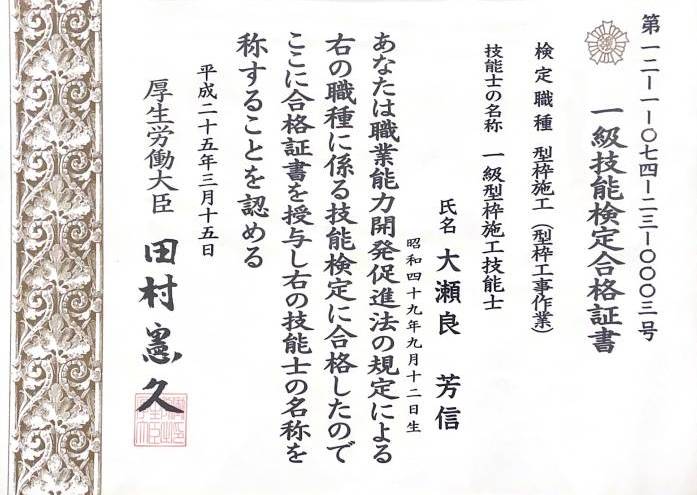 第一二-一-〇七四-二三-〇〇〇三号
一級技能検定合格証書
検定職種 型枠施工（型枠工事作業）
技能士の名称 一級型枠施工技能士
氏名 大瀬良 芳信
昭和四十九年九月十二日生
あなたは職業能力開発促進法の規定による
右の職種に係る技能検定に合格したので
ここに合格証書を授与し右の技能士の名称を
称することを認める
平成二十五年三月十五日
厚生労働大臣 田村憲久